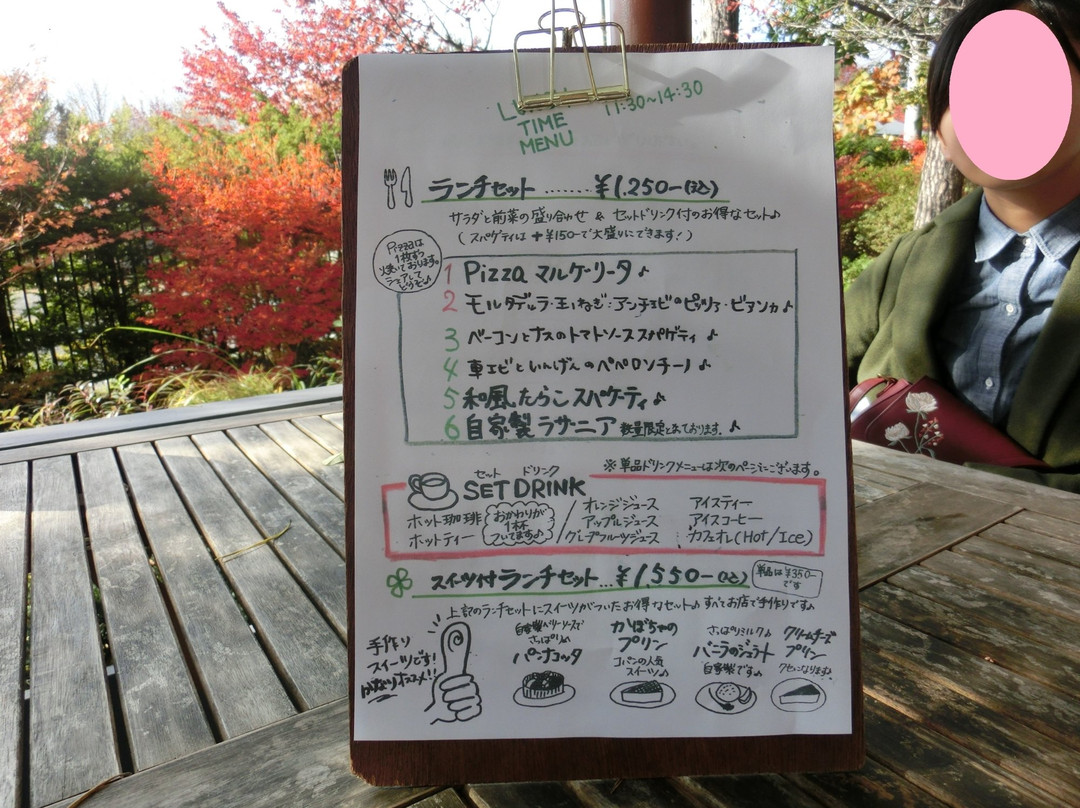 TIME
MENU
11:30~14:30
ランチセット ....... ¥1.250-(込)
サラダと前菜の盛り合わせ & セットドリンク付のお得なセット♪
(スパゲティは+¥150-で大盛りにできます!)
Pizzaは
1枚ずつ
焼いております。
シェアして
どうぞ♪
1 Pizza マルゲリータ♪
2 モルタデッラ・玉ねぎ・アンチョビのピッツァ・ビアンカ♪
3 ベーコンとナスのトマトソーススパゲティ♪
4 車エビといんげんのペペロンチーノ♪
5 和風たらこスパゲティ♪
6 自家製ラザニア 数量限定となております。♪
※単品ドリンクメニューは次のページにございます。
セット ドリンク
SET DRINK
ホット珈琲
ホットティー
おかわりが
1杯
ついてます♪
オレンジジュース
アップルジュース
グレープフルーツジュース
アイスティー
アイスコーヒー
カフェオレ(Hot/Ice)
スイーツ付ランチセット...¥1,550-(込)
単品は¥350-
です
上記のランチセットにスイーツがついたお得なセット♪すべてお店で手作りです♪
手作り
スイーツです!
かなりオススメ!!
自家製ベリーソースで
さっぱり♪
パンナコッタ
かぼちゃの
プリン
コパンの人気
スイーツ♪
さっぱりミルク♪
バニラのジェラート
自家製です♪
クリームチーズ
プリン
クセになります。